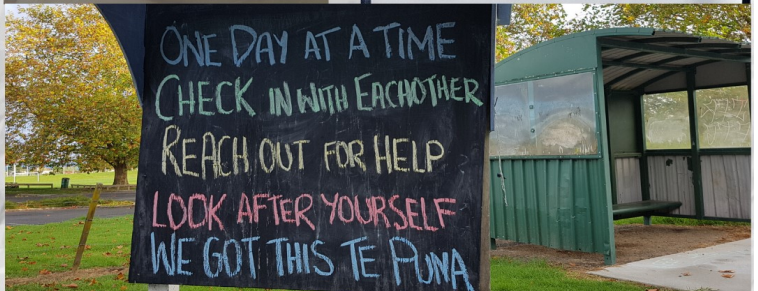 ONE DAY AT A TIME
CHECK IN WITH EACHOTHER
REACH OUT FOR HELP
LOOK AFTER YOURSELF
WE GOT THIS TE PUNA